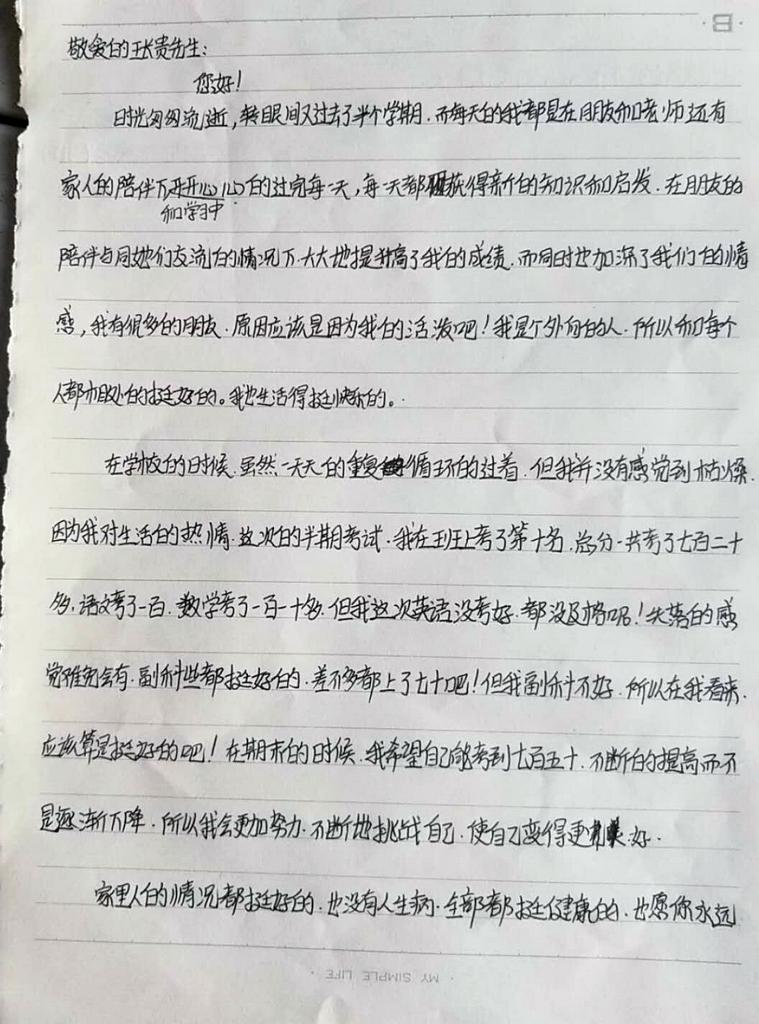 B
敬爱的张贵先生：
您好！
时光匆匆流逝，转眼间又过去了半个学期.而每天的我都是在朋友和老师还有
家人的陪伴下开开心心的过完每一天，每一天都获得新的知识和启发.在朋友的
和学习中
陪伴与同她们交流的情况下.大大地提升高了我的成绩.而同时也加深了我们的情
感，我有很多的朋友.原因应该是因为我的活泼吧！我是个外向的人.所以和每个
人都相处的挺好的。我也生活得挺快乐的。
在学校的时候.虽然一天天的重复循环的过着.但我并没有感觉到枯燥.
因为我对生活的热情.这次的半期考试.我在班上考了第十名.总分一共考了七百二十
多.语文考了一百.数学考了一百一十多.但我这次英语没考好.都没及格呢！失落的感
觉难免会有.副科些都挺好的.差不多都上了七十吧！但我副科不好.所以在我看来.
应该算是挺好的吧！在期末的时候.我希望自己能考到七百五十.不断的提高而不
是逐渐下降.所以我会更加努力.不断地挑战自己.使自己变得更美好.
家里人的情况都挺好的.也没有人生病.全部都挺健康的.也愿你永远
· MY SIMPLE LIFE ·